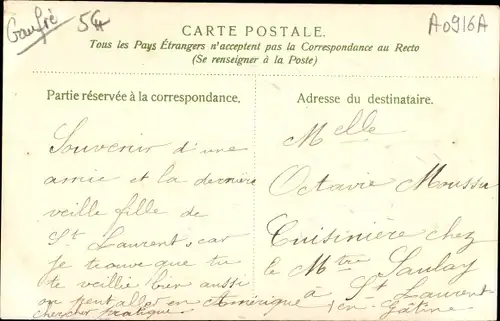 Gaufré
5€
A0916A
CARTE POSTALE.
Tous les Pays Étrangers n'acceptent pas la Correspondance au Recto
(Se renseigner à la Poste)
Partie réservée à la correspondance.
Souvenir d'une
amie et la dernière
veille fille de
St Laurent, car
je trouve que tu
te veillie bien aussi
on peut aller en Amérique
chercher pratique
Adresse du destinataire.
Melle
Octavie Moussu
Cuisinière chez
le Mtre Saulay
à St Laurent
en-Gâtine